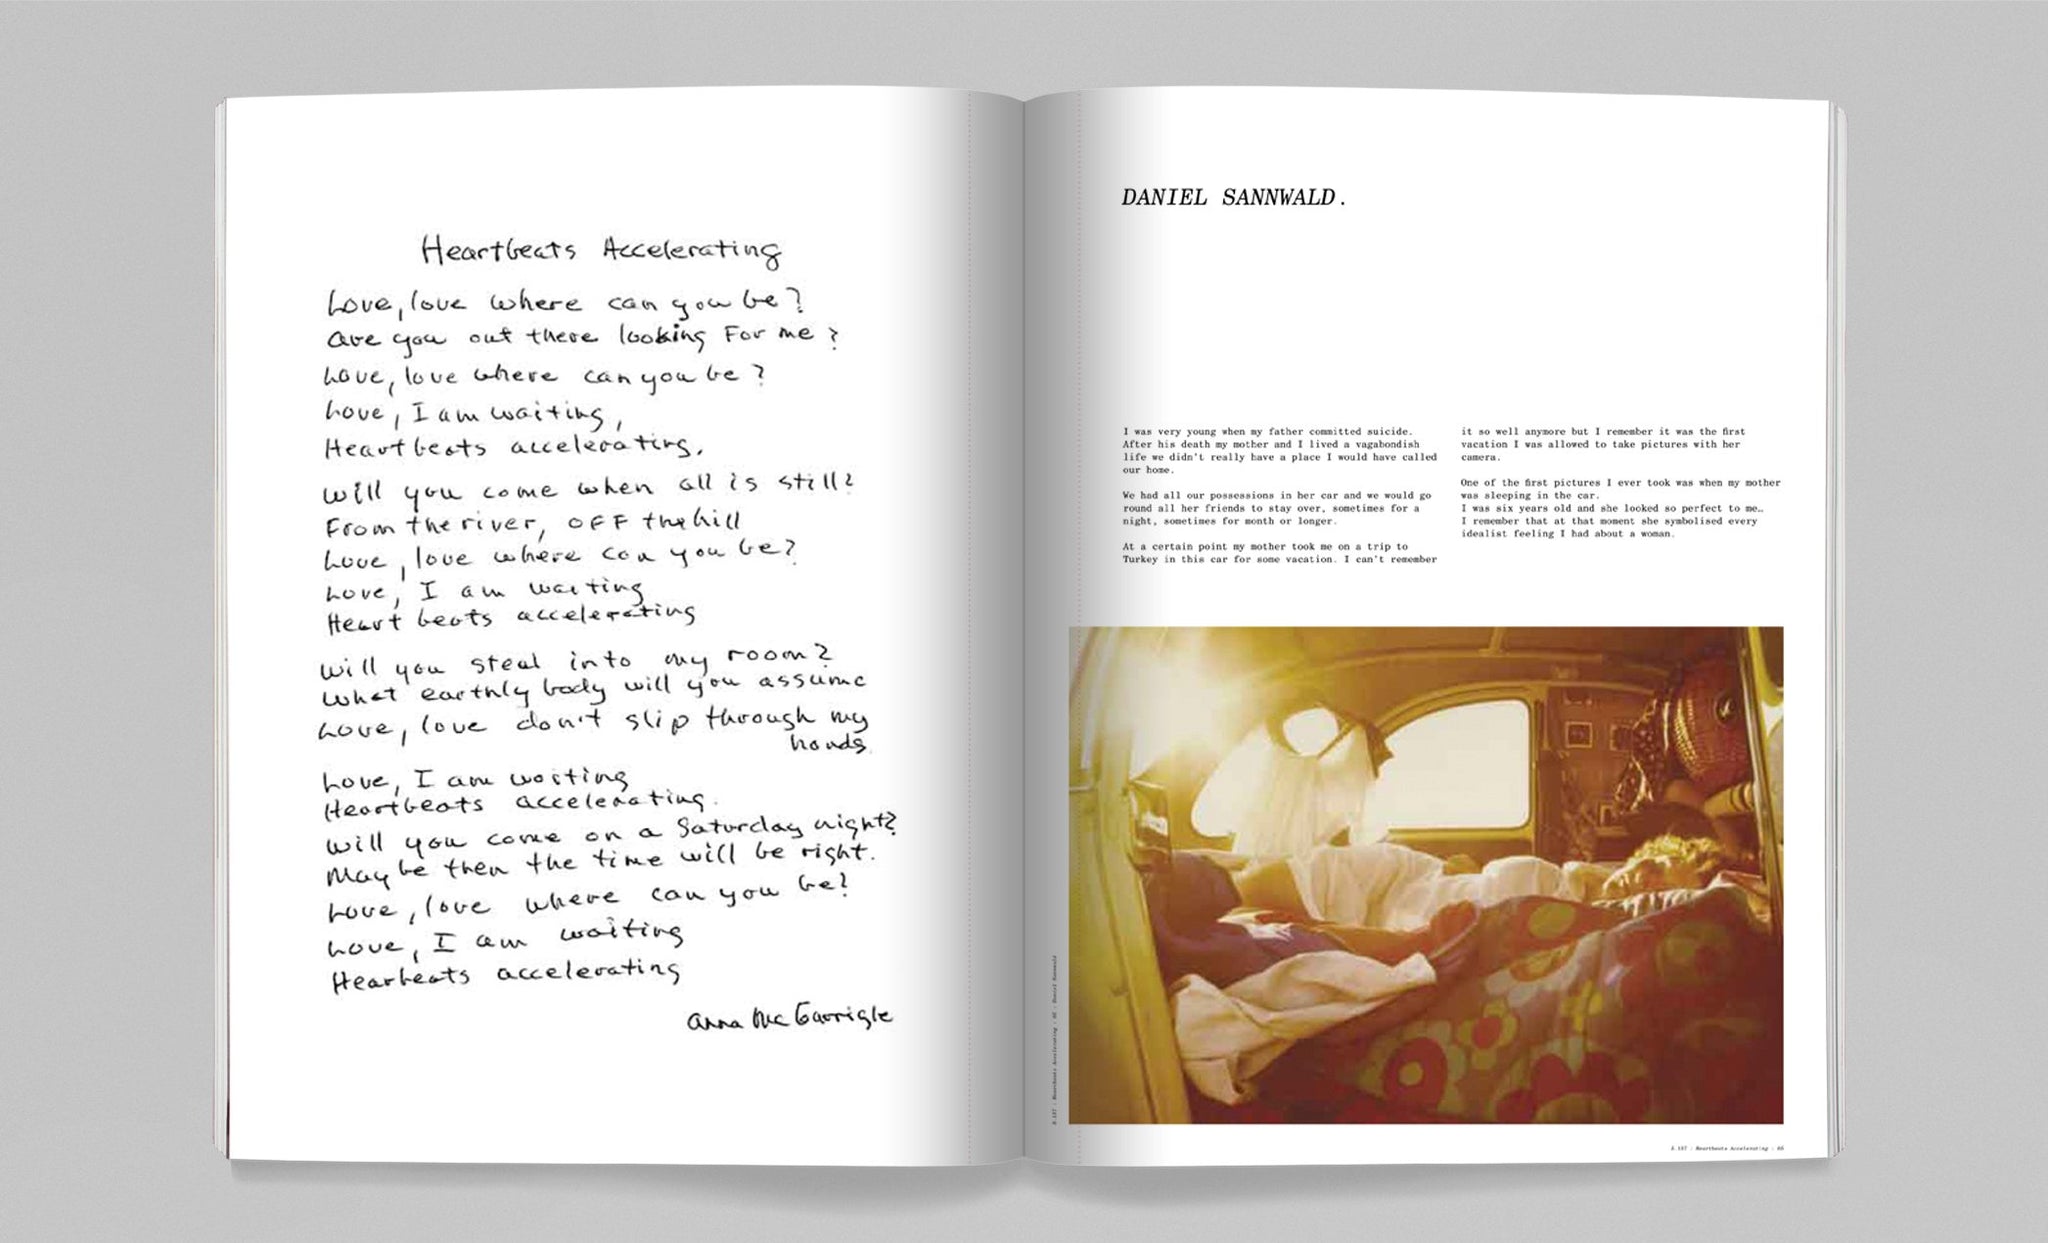 Heartbeats Accelerating
Love, love where can you be?
Are you out there looking For me?
Love, love where can you be?
Love, I am waiting,
Heartbeats accelerating.
Will you come when all is still?
From the river, OFF the hill
Love, love where can you be?
Love, I am waiting
Heart beats accelerating
Will you steal into my room?
What earthly body will you assume
Love, love don't slip through my
hands.
Love, I am waiting
Heartbeats accelerating.
Will you come on a Saturday night?
Maybe then the time will be right.
Love, love where can you be?
Love, I am waiting
Hearbeats accelerating
Anna McGarrigle
DANIEL SANNWALD.
I was very young when my father committed suicide.
After his death my mother and I lived a vagabondish
life we didn't really have a place I would have called
our home.
We had all our possessions in her car and we would go
round all her friends to stay over, sometimes for a
night, sometimes for month or longer.
At a certain point my mother took me on a trip to
Turkey in this car for some vacation. I can't remember
it so well anymore but I remember it was the first
vacation I was allowed to take pictures with her
camera.
One of the first pictures I ever took was when my mother
was sleeping in the car.
I was six years old and she looked so perfect to me…
I remember that at that moment she symbolised every
idealist feeling I had about a woman.
Heartbeats Accelerating : : Daniel Sannwald
: Heartbeats Accelerating :